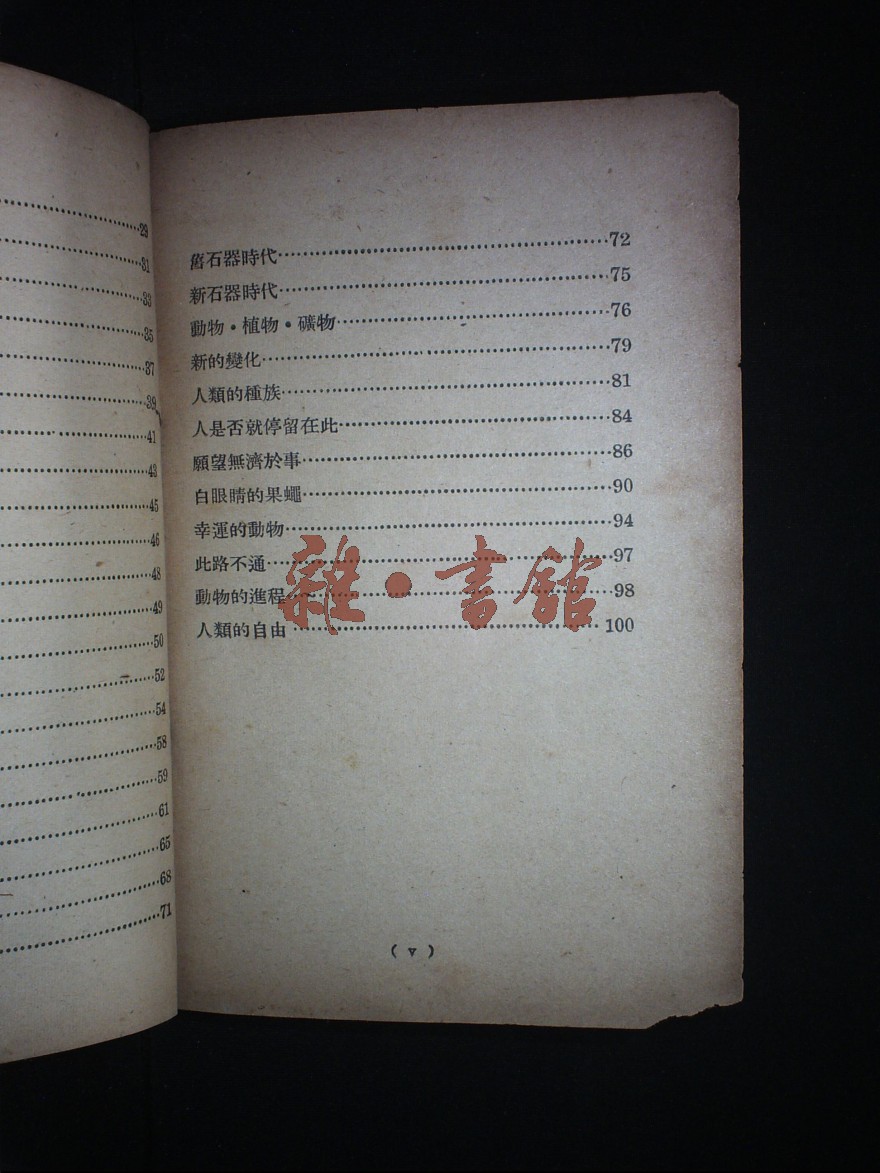 29
31
33
35
37
39
41
43
45
46
48
49
50
52
54
58
59
61
65
68
71
舊石器時代⋯⋯72
新石器時代⋯⋯75
動物・植物・礦物⋯⋯76
新的變化⋯⋯79
人類的種族⋯⋯81
人是否就停留在此⋯⋯84
願望無濟於事⋯⋯86
白眼睛的果蠅⋯⋯90
幸運的動物⋯⋯94
此路不通⋯⋯97
動物的進程⋯⋯98
人類的自由⋯⋯100
雜・書館
( v )